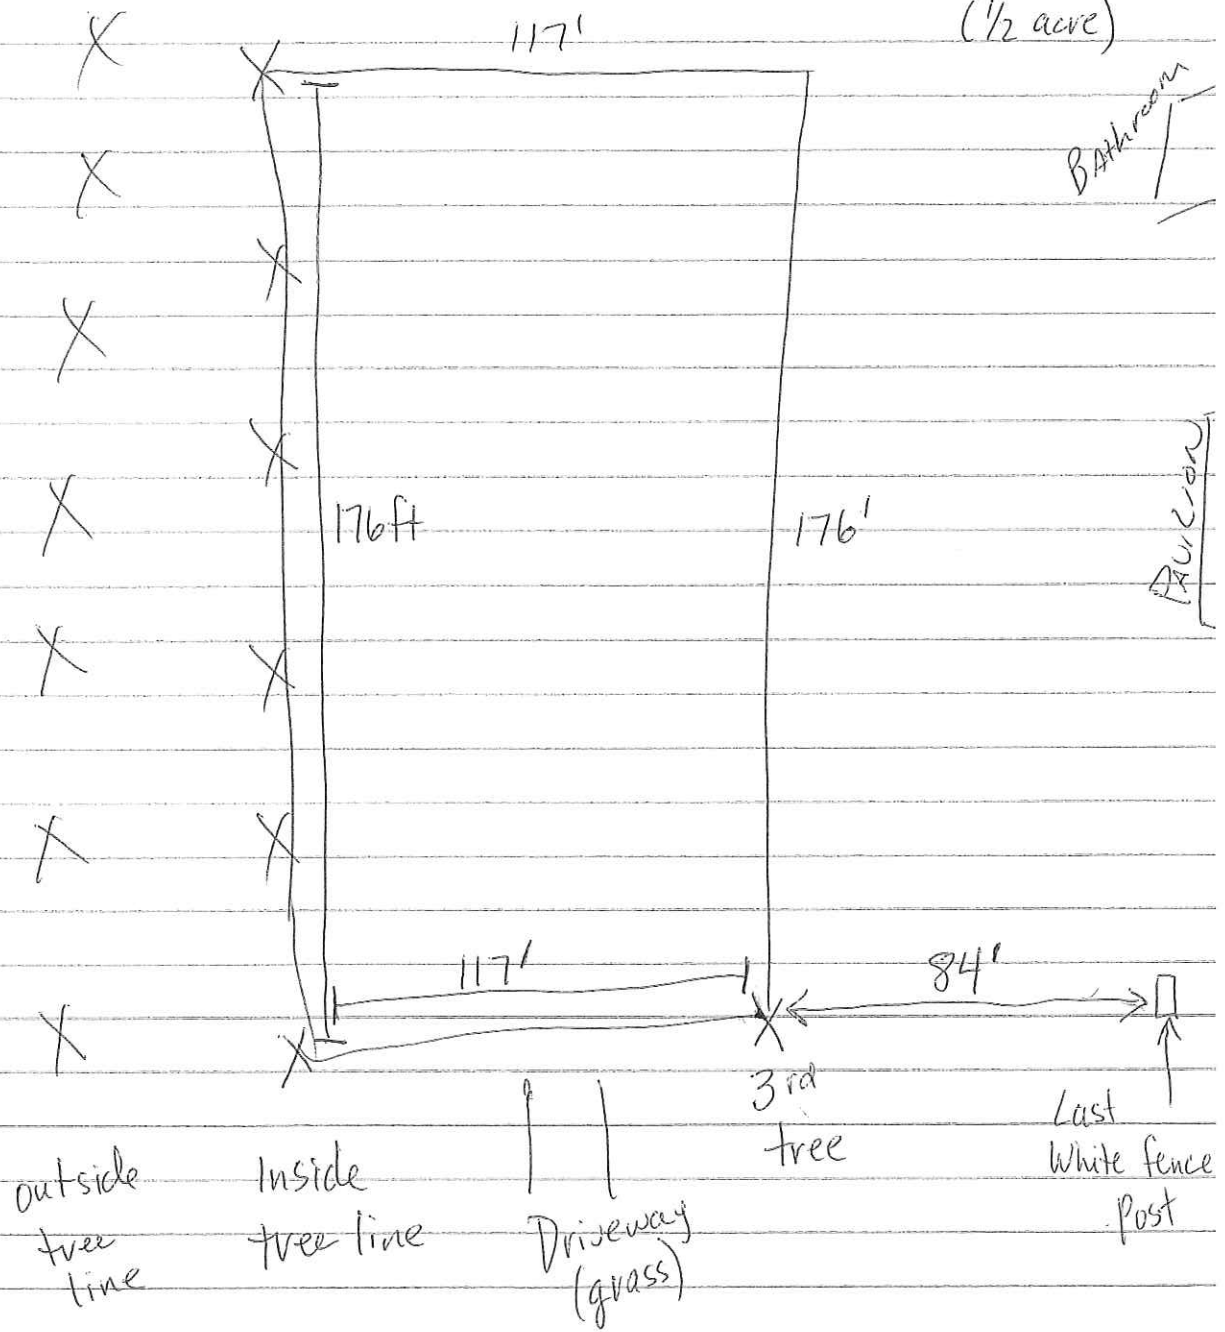 117'
(1/2 acre)
Bathroom
176ft
176'
Pavilion
117'
84'
3rd
tree
Last
White fence
Post
outside
tree
line
Inside
tree line
Driveway
(grass)